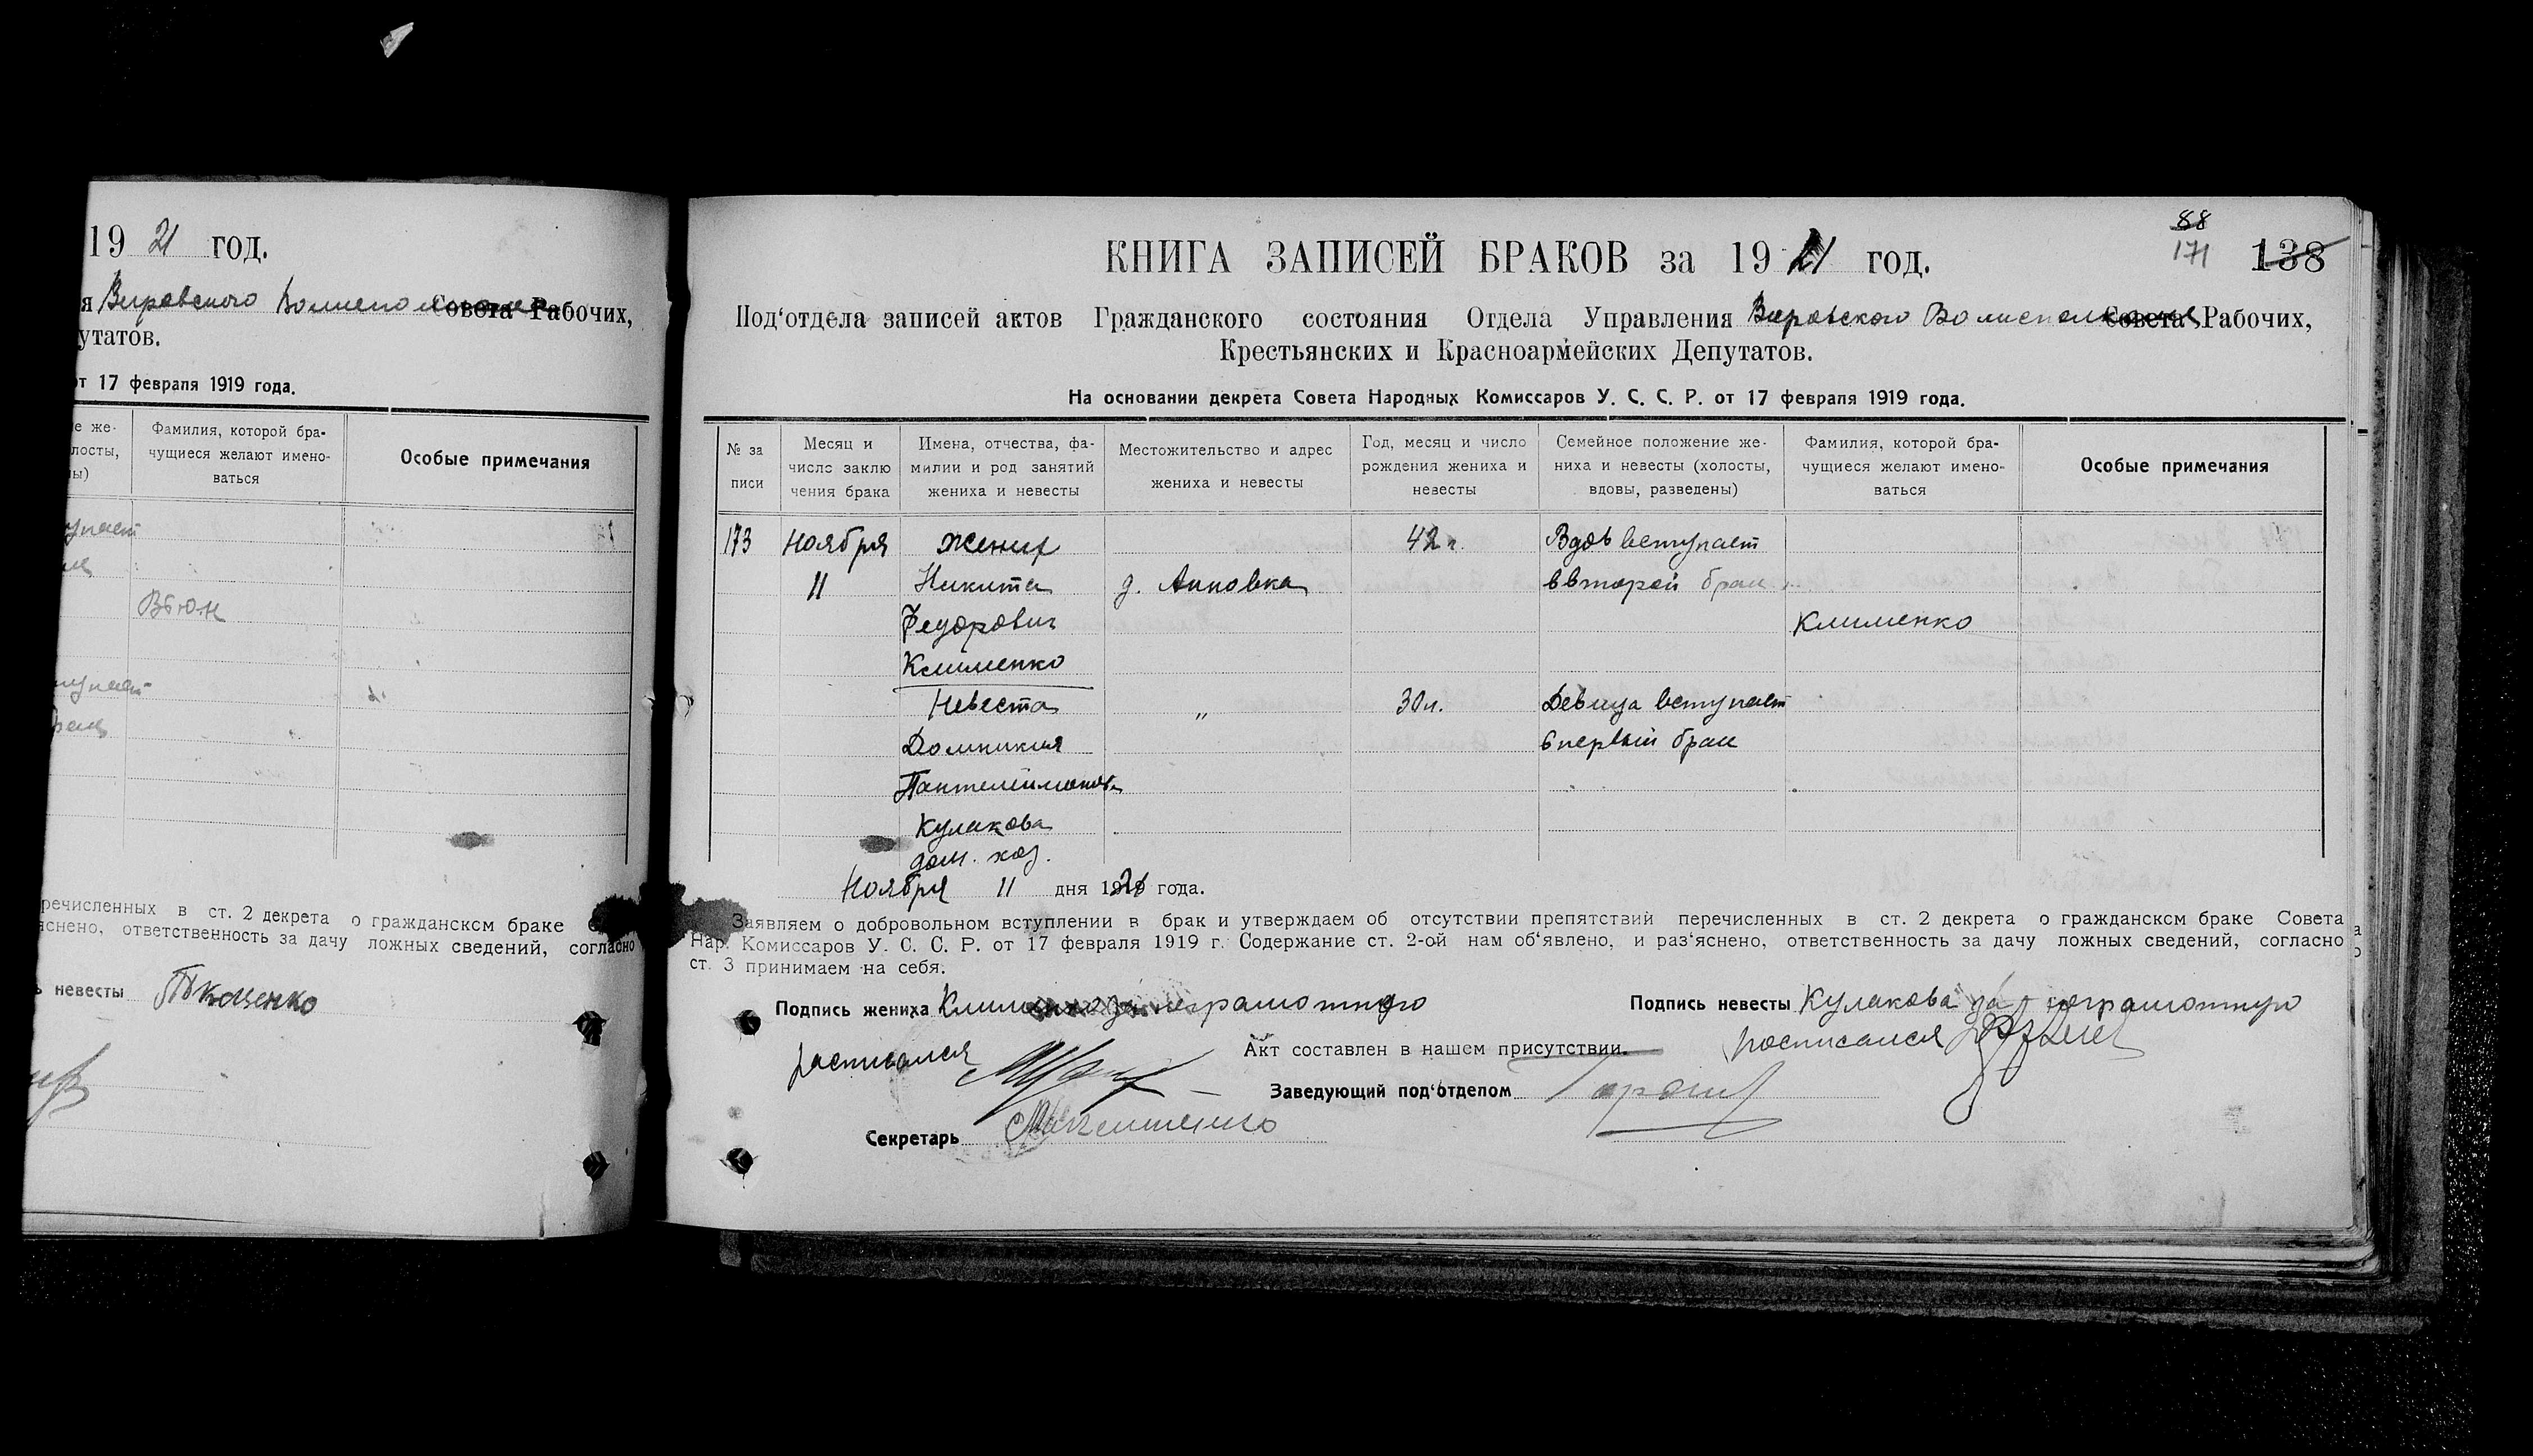 19 21 год.
я Вировского
Рабочих,
утатов.
от 17 февраля 1919 года.
е же-
лосты,
ы)
Фамилия, которой бра-
чущиеся желают имено-
ваться
Особые примечания
упает
Вьюн
тупает
речисленных в ст. 2 декрета о гражданском браке
яснено, ответственность за дачу ложных сведений, согласно
ь невесты Ткаченко
88
171
138
КНИГА ЗАПИСЕЙ БРАКОВ за 19 21 год.
Под‘отдела записей актов Гражданского состояния Отдела Управления Вировского Волисполкома Совета Рабочих,
Крестьянских и Красноармейских Депутатов.
На основании декрета Совета Народных Комиссаров У. С. С. Р. от 17 февраля 1919 года.
№ за
писи
Месяц и
число заклю
чения брака
Имена, отчества, фа-
милии и род занятий
жениха и невесты
Местожительство и адрес
жениха и невесты
Год, месяц и число
рождения жениха и
невесты
Семейное положение же-
ниха и невесты (холосты,
вдовы, разведены)
Фамилия, которой бра-
чущиеся желают имено-
ваться
Особые примечания
173 Ноября жених 42 г. Вдов вступает
11 Никита д. Анновка в второй брак
Федорович Клименко
Клименко
Невеста „ 30 л. Девица вступает
Домникия в первый брак
Пантелеймонова
Кулакова
дом. хоз.
Ноября 11 дня 1921 года.
Заявляем о добровольном вступлении в брак и утверждаем об отсутствии препятствий перечисленных в ст. 2 декрета о гражданском браке Совета
Нар. Комиссаров У. С. С. Р. от 17 февраля 1919 г. Содержание ст. 2-ой нам об‘явлено, и раз‘яснено, ответственность за дачу ложных сведений, согласно
ст. 3 принимаем на себя.
Подпись жениха Клименко за неграмотного
Подпись невесты Кулакова за неграмотную
расписался
Акт составлен в нашем присутствии.
росписался
Заведующий под‘отделом
Секретарь